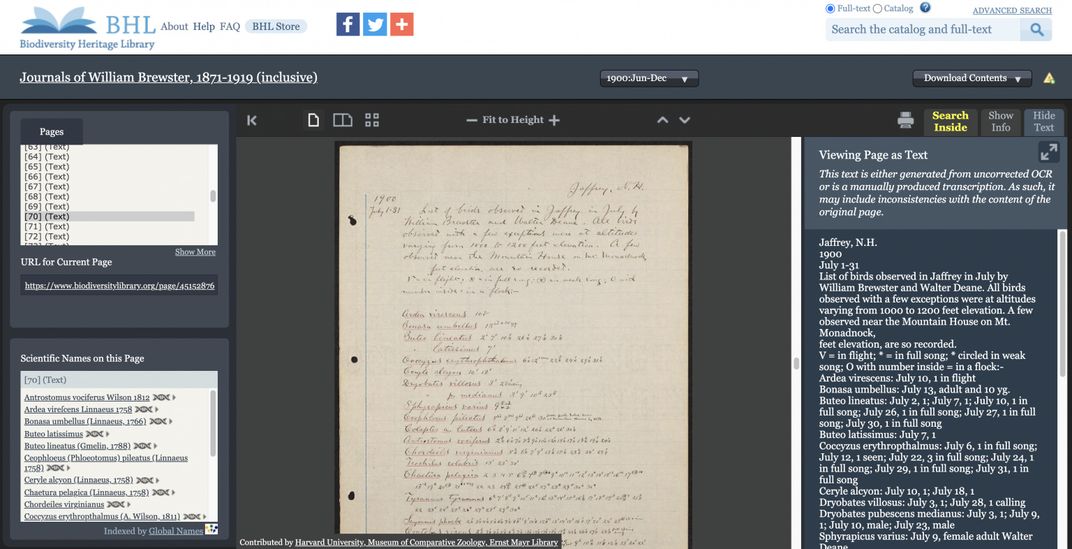 BHL
Biodiversity Heritage Library
About Help FAQ BHL Store
Full-text Catalog ?
ADVANCED SEARCH
Search the catalog and full-text
Journals of William Brewster, 1871-1919 (inclusive)
1900:Jun-Dec
Download Contents
Pages
[63] (Text)
[64] (Text)
[65] (Text)
[66] (Text)
[67] (Text)
[68] (Text)
[69] (Text)
[70] (Text)
[71] (Text)
[72] (Text)
Show More
URL for Current Page
https://www.biodiversitylibrary.org/page/45152876
Scientific Names on this Page
[70] (Text)
Antrostomus vociferus Wilson 1812
Ardea virefcens Linnaeus 1758
Bonasa umbellus (Linnaeus, 1766)
Buteo latissimus
Buteo lineatus (Gmelin, 1788)
Ceophloeus (Phloeotomus) pileatus (Linnaeus
1758)
Ceryle alcyon (Linnaeus, 1758)
Chaetura pelagica (Linnaeus, 1758)
Chordeiles virginianus
Coccyzus erythropthalmus (A. Wilson, 1811)
Indexed by Global Names
Fit to Height
Jaffrey, N.H.
1900
July 1-31 List of birds observed in Jaffrey in July by
William Brewster and Walter Deane. All birds
observed with a few exceptions were at altitudes
varying from 1000 to 1200 feet elevation. A few
observed near the Mountain House on Mt. Monadnock,
feet elevation, are so recorded.
Ardea virescens
Bonasa umbellus
Buteo lineatus
" latissimus
Coccyzus erythropthalmus
Ceryle alcyon
Dryobates villosus
Sphyrapicus varius
Ceophloeus pileatus
Colaptes a. luteus
Antrostomus vociferus
Chordeiles virginianus
Trochilus colubris
Chaetura pelagica
Tyrannus tyrannus
Sayornis phoebe
Contopus
Contributed by Harvard University, Museum of Comparative Zoology, Ernst Mayr Library
Search Inside
Show Info
Hide Text
Viewing Page as Text
This text is either generated from uncorrected OCR
or is a manually produced transcription. As such, it
may include inconsistencies with the content of the
original page.
Jaffrey, N.H.
1900
July 1-31
List of birds observed in Jaffrey in July by
William Brewster and Walter Deane. All birds
observed with a few exceptions were at altitudes
varying from 1000 to 1200 feet elevation. A few
observed near the Mountain House on Mt.
Monadnock,
feet elevation, are so recorded.
V = in flight; * = in full song; * circled in weak
song; O with number inside = in a flock:-
Ardea virescens: July 10, 1 in flight
Bonasa umbellus: July 13, adult and 10 yg.
Buteo lineatus: July 2, 1; July 7, 1; July 10, 1 in
full song; July 26, 1 in full song; July 27, 1 in full
song; July 30, 1 in full song
Buteo latissimus: July 7, 1
Coccyzus erythropthalmus: July 6, 1 in full song;
July 12, 1 seen; July 22, 3 in full song; July 24, 1
in full song; July 29, 1 in full song; July 31, 1 in
full song
Ceryle alcyon: July 10, 1; July 18, 1
Dryobates villosus: July 3, 1; July 28, 1 calling
Dryobates pubescens medianus: July 3, 1; July 9,
1; July 10, male; July 23, male
Sphyrapicus varius: July 9, female adult Walter
Deane